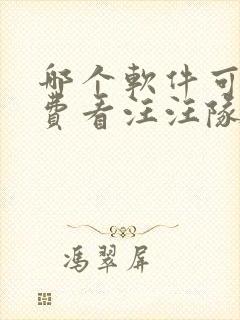 邮个軟件可
費看汪汪隊
馮翠屏